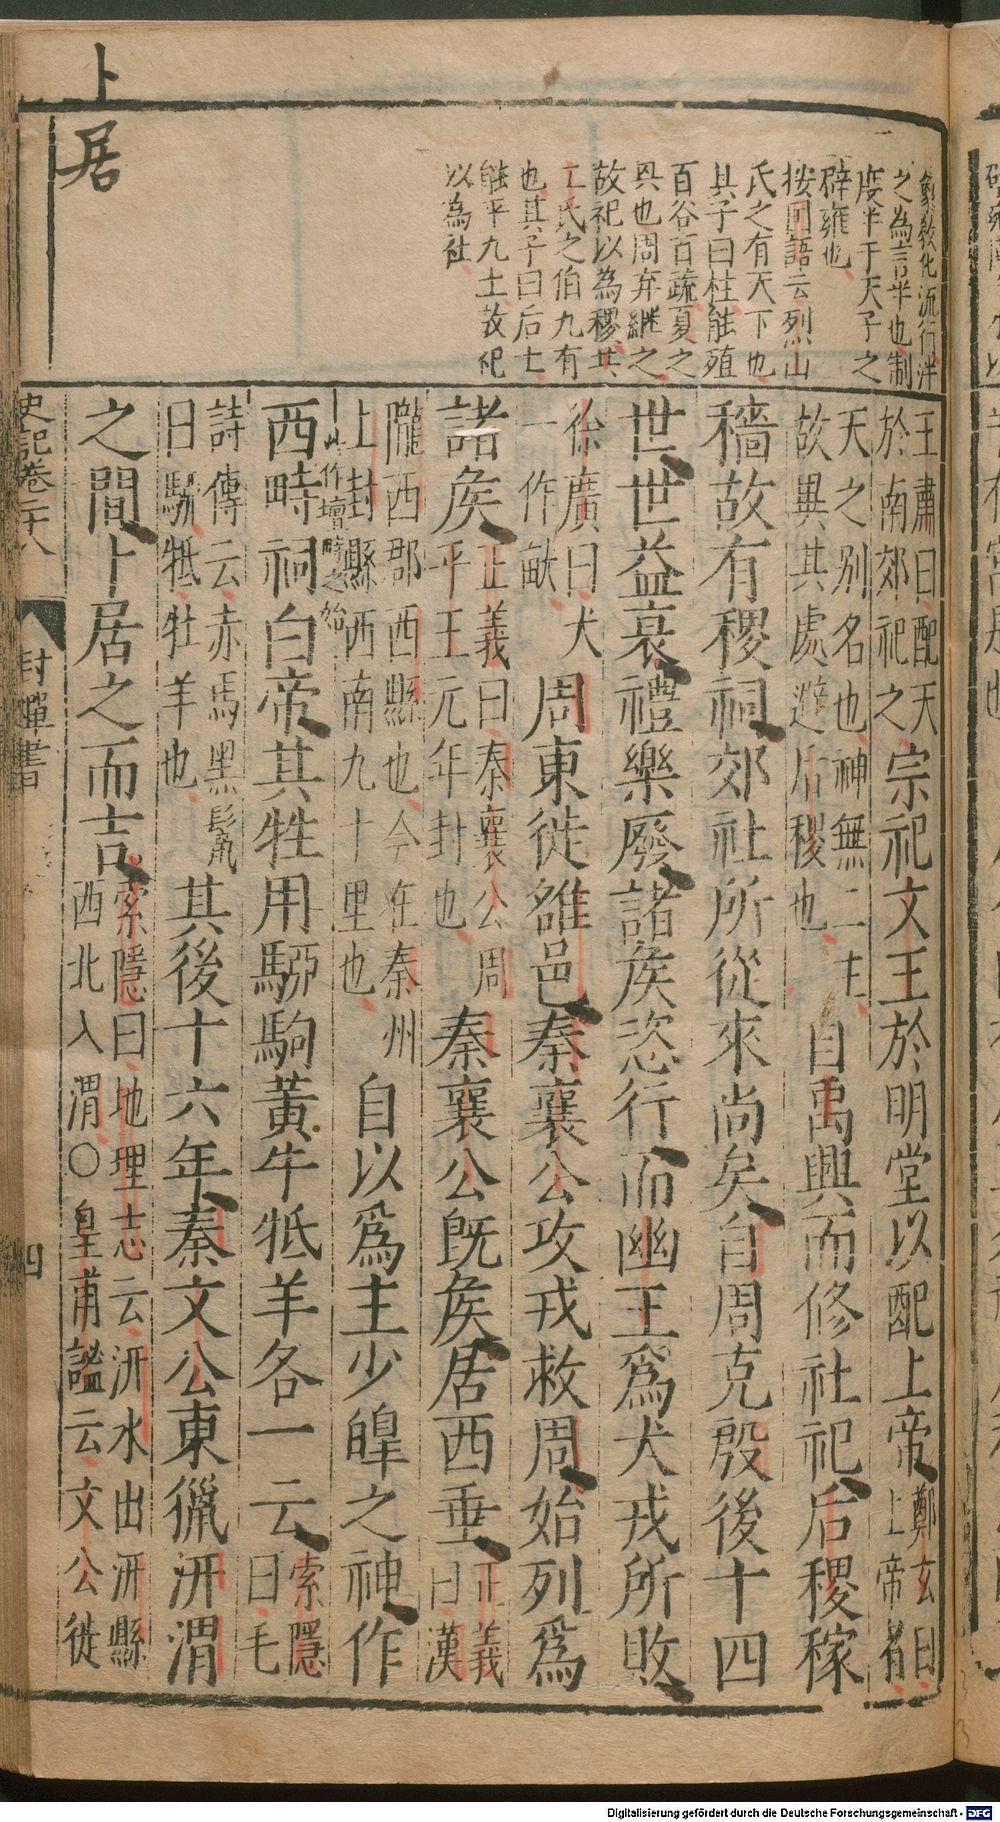 卜
居
象教化流行泮
之為言半也制
度半于天子之
辟雍也
按囯語云烈山
氏之有天下也
其子曰柱能殖
百谷百蔬夏之
興也周弃繼之
故祀以為稷共
工氏之伯九有
也其子曰后土
能平九土故祀
以為社
王肅曰配天
於南郊祀之
宗祀文王於明堂以配上帝
鄭玄曰
上帝者
天之别名也神無二主
故異其處避后稷也
自禹興而修社祀后稷稼
穡故有稷祠郊社所從來尚矣自周克殷後十四
世世益衰禮樂廢諸矦恣行而幽王為犬戎所敗
徐廣曰犬
一作畎
周東徙雒邑秦襄公攻戎救周始列為
諸矦
正義曰秦襄公周
平王元年封也
秦襄公既矦居西垂
正義
曰漢
隴西郡西縣也今在秦州
上封縣西南九十里也
自以為主少皡之神作
此作壇畤之始
西畤祠白帝其牲用騮駒黃牛羝羊各一云
索隱
曰毛
詩傳云赤馬黑髦鬣
曰騮羝牡羊也
其後十六年秦文公東獵汧渭
之間卜居之而吉
索隱曰地理志云汧水出汧縣
西北入渭○皇甫謐云文公徙
史記卷二十八
封禪書
四
Digitalisierung gefördert durch die Deutsche Forschungsgemeinschaft - DFG